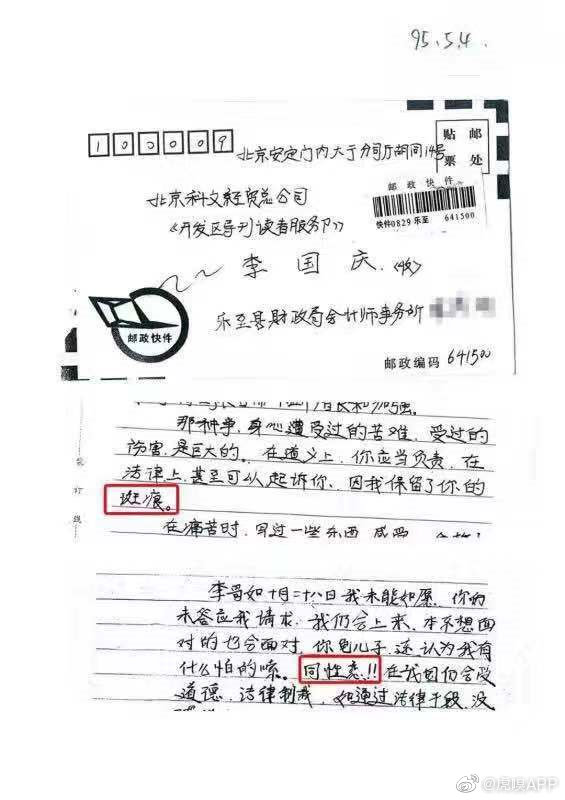 95.5.4.
100009
贴邮
票处
北京安定门内大街分司厅胡同14号
邮政快件
快件0829 乐至 641500
北京科文经贸总公司
《开发区导刊读者服务部》
李国庆〈收〉
邮政快件
乐至县财政局会计师事务所
邮政编码 641500
装订线
那种事,身心遭受过的苦难,受过的
伤害,是巨大的。在道义上,你应当负责,在
法律上,甚至可以起诉你,因我保留了你的
斑痕。
在痛苦时,写过一些东西
李哥如十月二十八日我未能如愿,你如
未答应我请求,我仍会上来,本不想面
对的也会面对,你龟儿子,还认为我有
什么怕的嗦。同性恋!!在我国仍会受
道德,法律制裁,如通过法律手段,没
@虎嗅APP